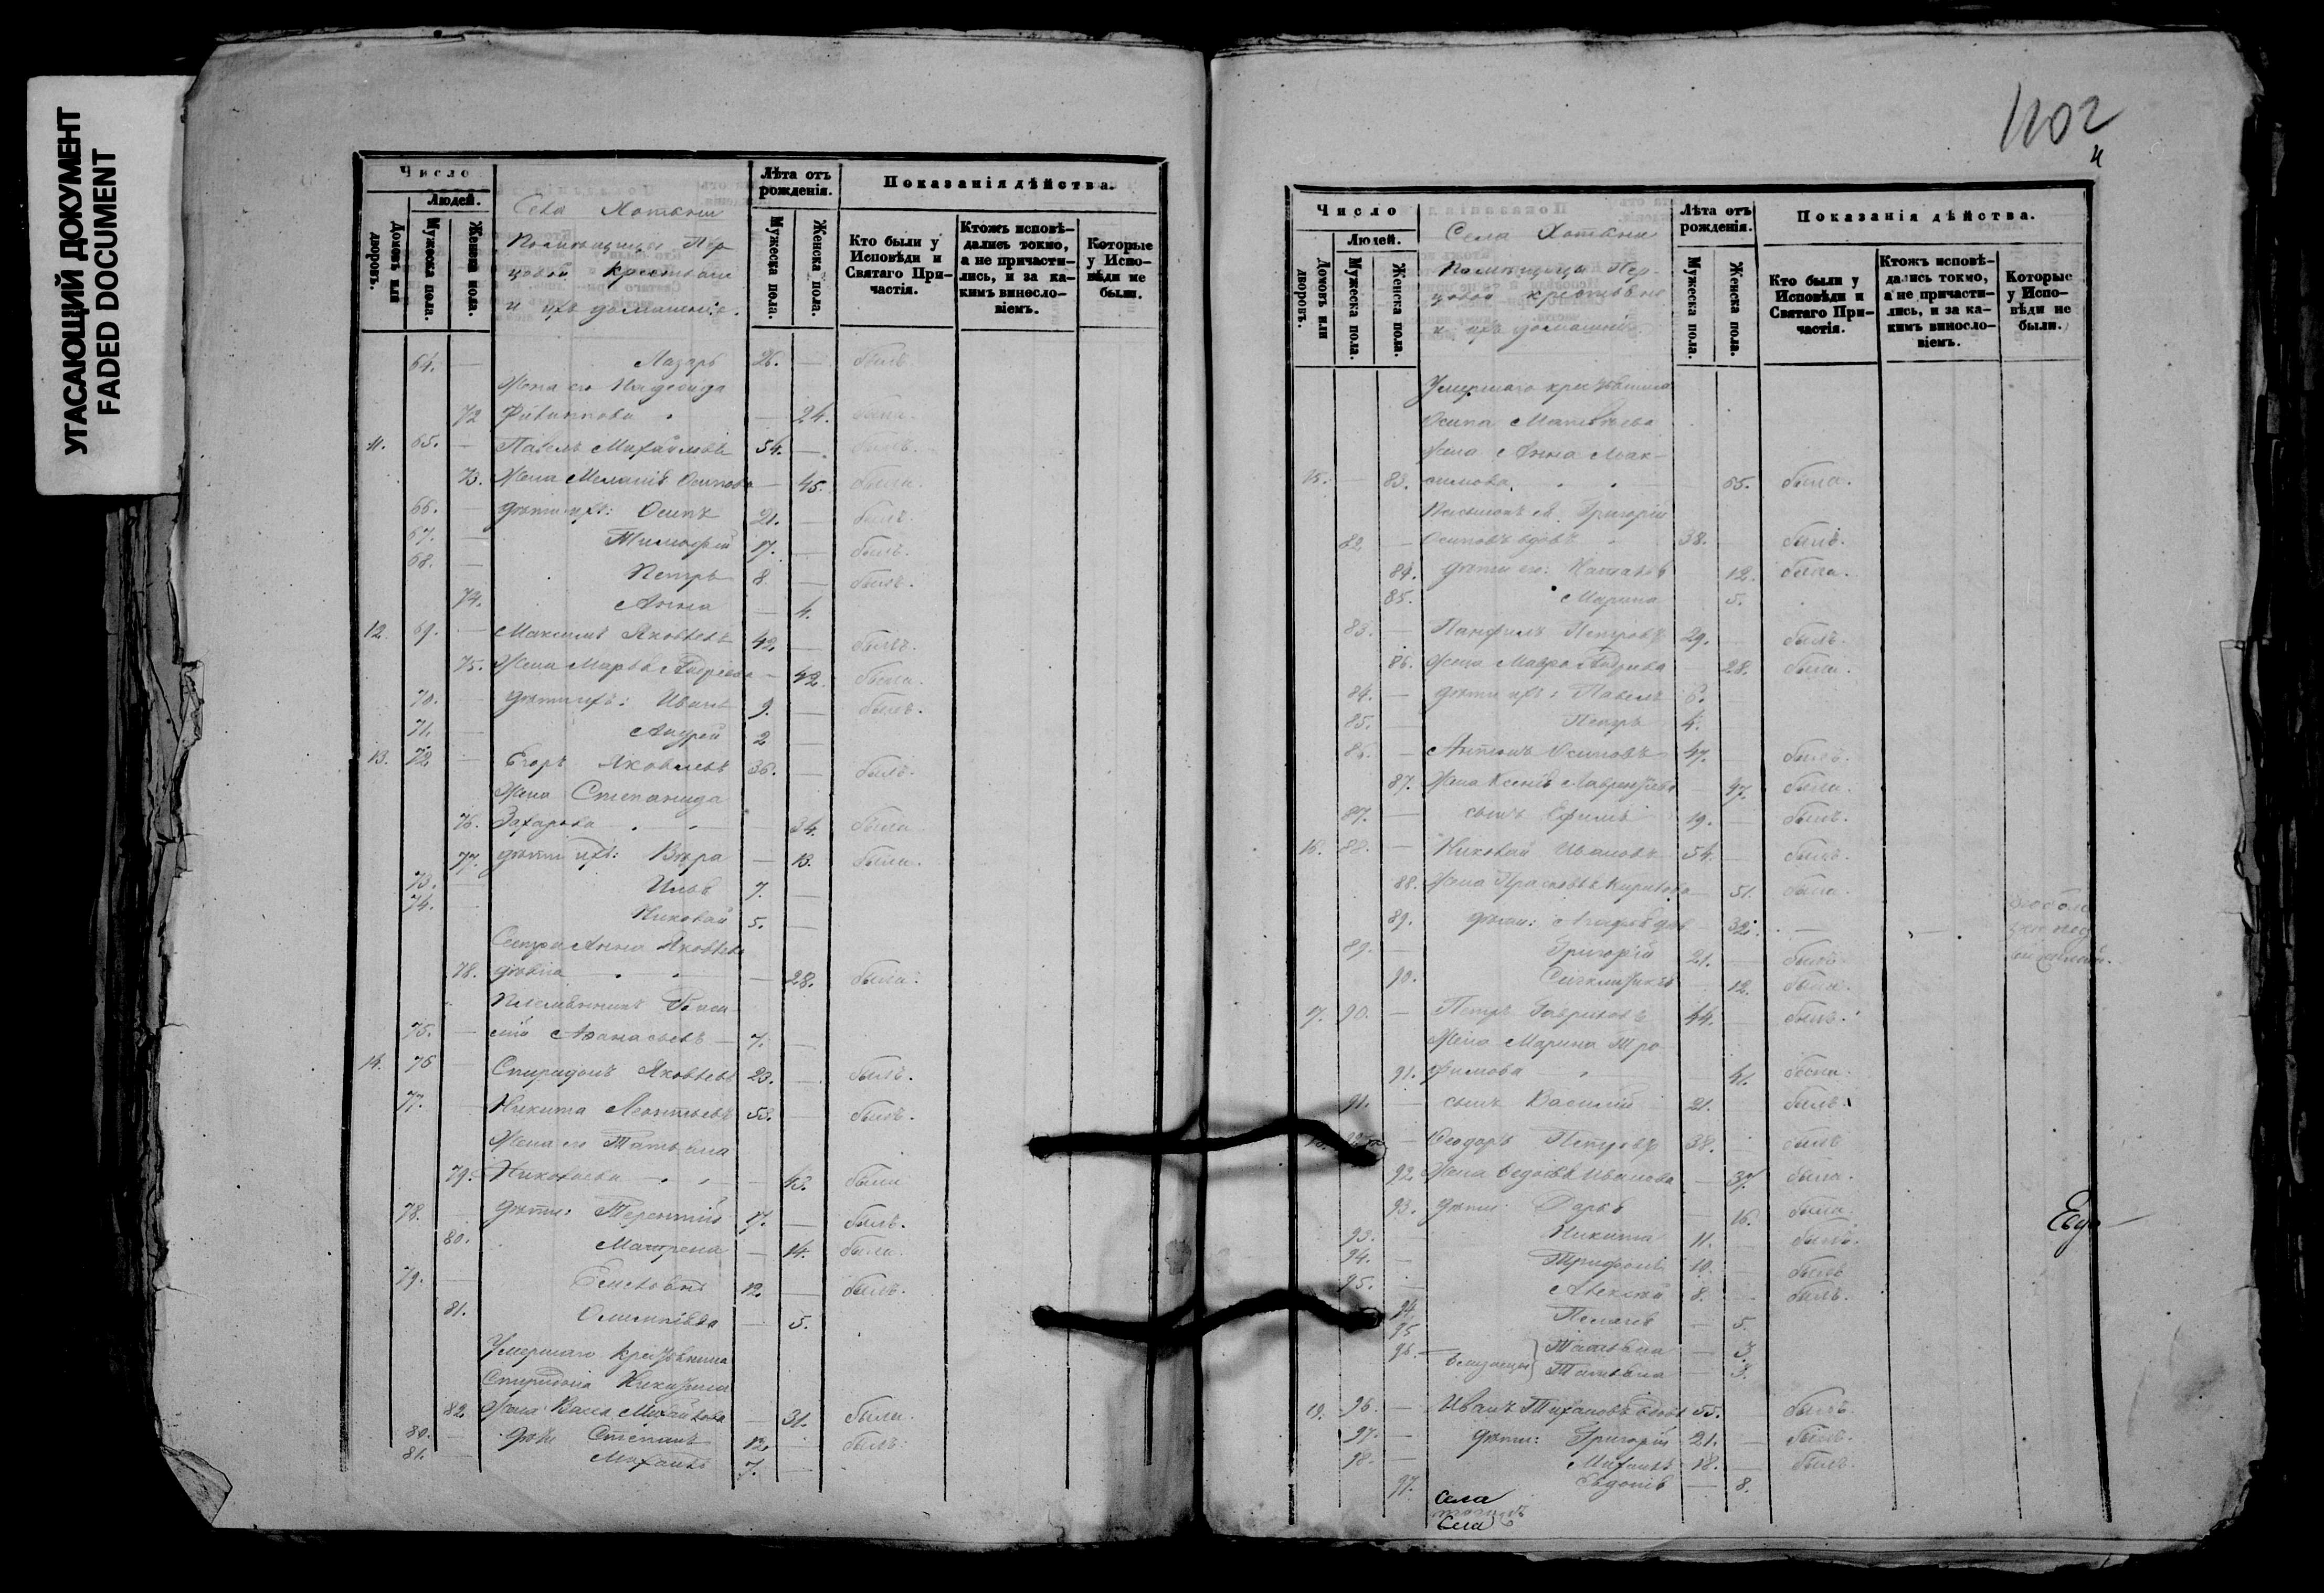 УГАСАЮЩИЙ ДОКУМЕНТ
FADED DOCUMENT
Число
Людей.
Домовъ или дворовъ.
Мужеска пола.
Женска пола.
Лѣта отъ рожденія.
Мужеска пола.
Женска пола.
Показанія дѣйства.
Кто были у Исповѣди и Святаго Причастія.
Ктожъ исповѣдались токмо, а не причастились, и за какимъ винословіемъ.
Которые у Исповѣди не были.
Села Хотыни
Помѣщицы Перцовой крестьяне
и ихъ домашніе.
64. — Лазарь 26. — былъ
Жена его Надежда
72 Филиппова — 24. была.
11. 65. — Павелъ Михайловъ 54. — былъ.
73. Жена Меланія Осипова — 45. была.
66. — дѣти ихъ: Осипъ 21. — былъ.
67. — Тимофей 17. — былъ.
68. — Петръ 8. — былъ.
74. Анна — 4.
12. 69. — Максимъ Яковлевъ 42. — былъ.
75. Жена Марья Андреева — 42. была.
70. — дѣти ихъ: Иванъ 9. — былъ.
71. — Андрей 2 —
13. 72 — Егоръ Яковлевъ 36. — былъ.
Жена Степанида
76. Захарова — 34. была
77. дѣти ихъ: Вѣра — 13. была.
73. — Илья 7. —
74. Николай 5. —
Сестра Анна Яковлева
78. дѣвица — 28. была.
Племянникъ
75. — Афанасьевъ — 7. —
14. 76 — Спиридонъ Яковлевъ 23. — былъ.
77. — Никита Леонтьевъ 53. — былъ.
Жена его Татьяна
79. Николаева — 43. была
78. — дѣти: Терентій 17. — былъ.
80. Матрена — 14. была.
79. — Емельянъ 12. — былъ.
81. Олимпіада — 5.
Умершаго крестьянина
Спиридона Никитина
82. Жена Васса Михайлова — 31. была.
80. — дѣти Степанъ 12. — былъ.
81. — Михаилъ 7. —
1102
Число
Людей.
Домовъ или дворовъ.
Мужеска пола.
Женска пола.
Лѣта отъ рожденія.
Мужеска пола.
Женска пола.
Показанія дѣйства.
Кто были у Исповѣди и Святаго Причастія.
Ктожъ исповѣдались токмо, а не причастились, и за какимъ винословіемъ.
Которые у Исповѣди не были.
Села Хотыни
Помѣщицы Перцовой крестьяне
и ихъ домашніе.
Умершаго крестьянина
Осипа Матвѣева
Жена Анна Мак-
15. — 83. симова 65. была.
Григорій
82 — Осиповъ вдовъ 38. былъ.
84. дѣти его: Наталья 12. была.
85. Марина 5.
83. — Панфилъ Петровъ 29. былъ.
86. Жена Мавра Андреева — 28. была.
84. — дѣти ихъ: Павелъ 6.
85. — Петръ 4.
86. — Антонъ Осиповъ 47. былъ.
87. Жена Ксенія Лаврентьева — 47. была.
87. — сынъ Ефимъ 19. — былъ.
16. 88. — Николай Ивановъ 54. былъ.
88. Жена Прасковья Кирилова — 51. была.
89. дѣти: Агафья — 32. —
89. — Григорій 21. — былъ
90. — 12. была.
17. 90. — Петръ Гавриловъ 44. былъ.
Жена Марина Тро-
91. фимова — 41. была.
91. — сынъ Василій 21. — былъ.
— Ѳеодоръ Петровъ 38. былъ
92 Жена Ѳедосья Иванова — 37. была.
93. дѣти: Дарья — 16. была.
93. — Никита 11. — былъ.
94. — Трифонъ 10. — былъ
95. — Алексѣй 8. — былъ.
94. Пелагея — 5.
95 Татьяна — 3.
96. близнецы Татьяна — 3.
19. 96. — Иванъ Тихановъ вдовъ 55. былъ.
97. — дѣти: Григорій 21. — былъ.
98. — Михаилъ 18. — былъ.
97. Евдокія — 8.
Села
Села